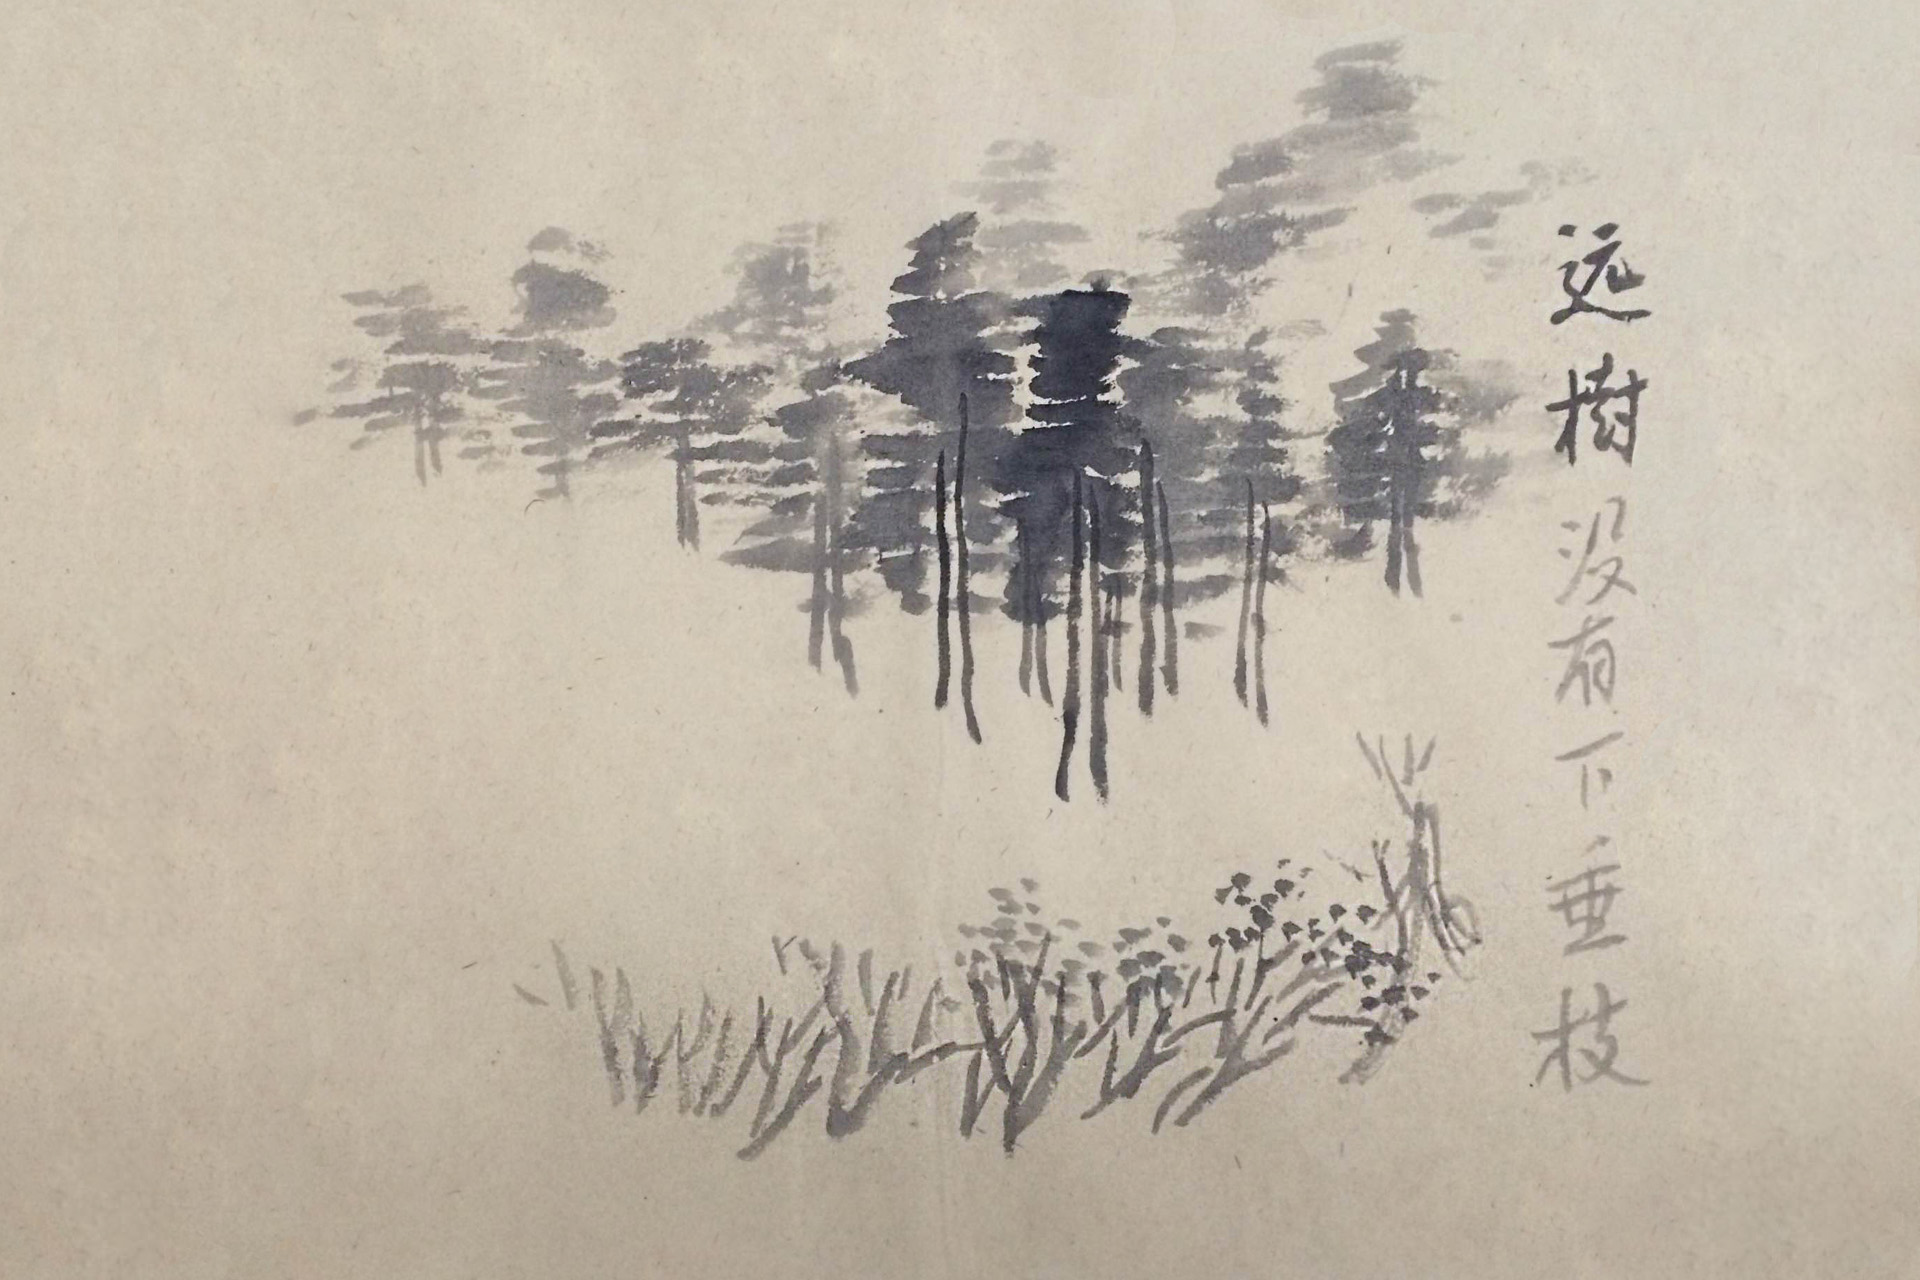 远樹没有下垂枝